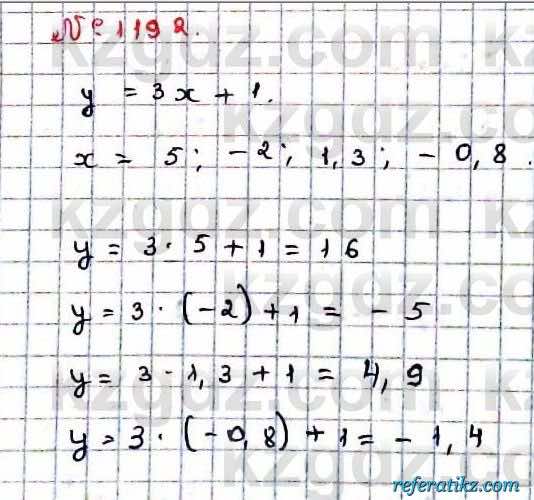 № 1192.
y = 3x + 1.
x = 5; -2; 1,3; -0,8.
y = 3 · 5 + 1 = 16
y = 3 · (-2) + 1 = -5
y = 3 · 1,3 + 1 = 4,9
y = 3 · (-0,8) + 1 = -1,4
kzgdz.com
referatikz.com